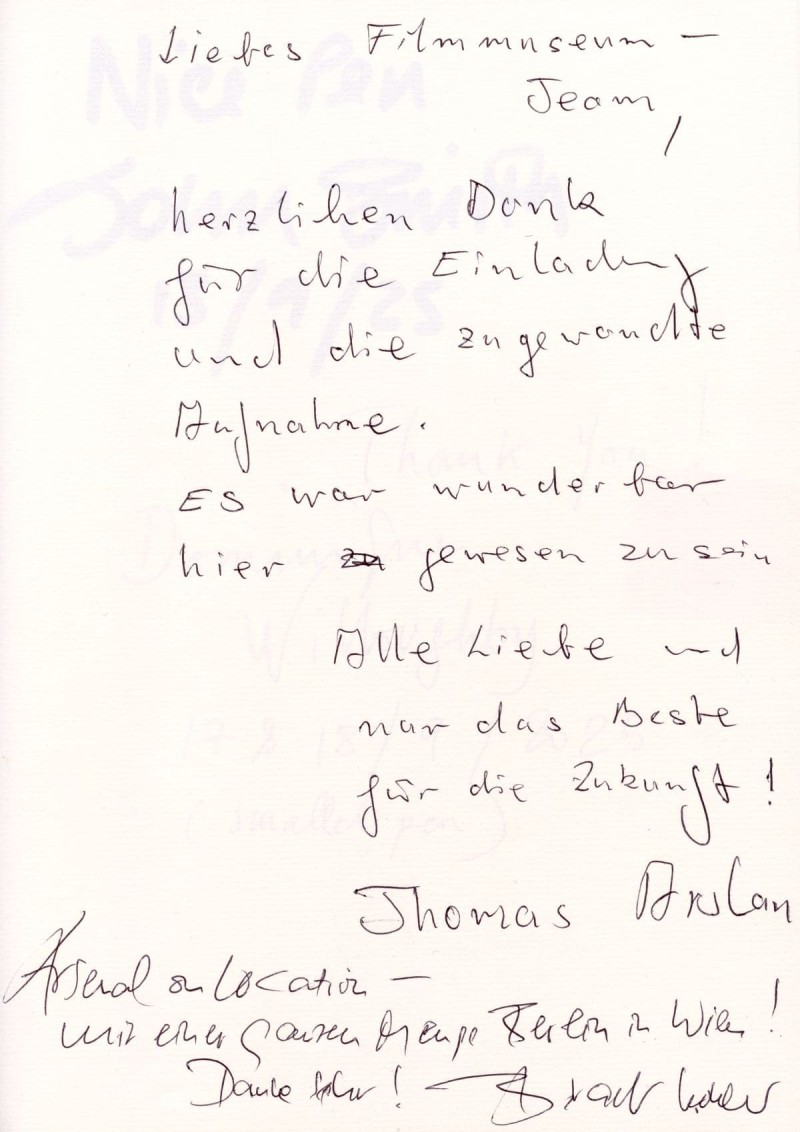 Liebes Filmmuseum –
Team,
herzlihen Dank
für die Einladung
und die zugewandte
Aufnahme.
ES war wunderbar
hier gewesen zu sein
Alle Liebe und
nur das Beste
für die Zukunft!
Thomas Arslan
Arsenal on Location –
mit einer ganzen Menge Berlin in Wien!
Danke sehr! –
Nice Pen
John Smith
/9/25
Thank you!
Willoughby
17 & 18/9/2025
(smaller pen)